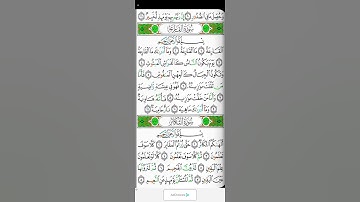 وَحُصِّلَ مَا فِي الصُّدُورِ إِنَّ رَبَّهُم بِهِمْ يَوْمَئِذٍ لَّخَبِيرٌ
سُورَةُ الْقَارِعَةِ
بِسْمِ اللَّهِ الرَّحْمَٰنِ الرَّحِيمِ
الْقَارِعَةُ مَا الْقَارِعَةُ وَمَا أَدْرَاكَ مَا الْقَارِعَةُ
يَوْمَ يَكُونُ النَّاسُ كَالْفَرَاشِ الْمَبْثُوثِ
وَتَكُونُ الْجِبَالُ كَالْعِهْنِ الْمَنفُوشِ فَأَمَّا
مَن ثَقُلَتْ مَوَازِينُهُ فَهُوَ فِي عِيشَةٍ رَّاضِيَةٍ
وَأَمَّا مَنْ خَفَّتْ مَوَازِينُهُ فَأُمُّهُ هَاوِيَةٌ
وَمَا أَدْرَاكَ مَا هِيَهْ نَارٌ حَامِيَةٌ
سُورَةُ التَّكَاثُرِ
بِسْمِ اللَّهِ الرَّحْمَٰنِ الرَّحِيمِ
أَلْهَاكُمُ التَّكَاثُرُ حَتَّىٰ زُرْتُمُ الْمَقَابِرَ كَلَّا سَوْفَ
تَعْلَمُونَ ثُمَّ كَلَّا سَوْفَ تَعْلَمُونَ كَلَّا لَوْ تَعْلَمُونَ
عِلْمَ الْيَقِينِ لَتَرَوُنَّ الْجَحِيمَ ثُمَّ لَتَرَوُنَّهَا
عَيْنَ الْيَقِينِ ثُمَّ لَتُسْأَلُنَّ يَوْمَئِذٍ عَنِ النَّعِيمِ